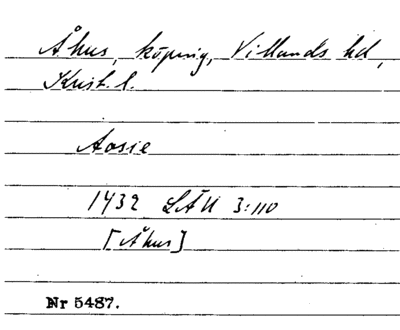 Åhus, köping, Villands hd,
Krist. l.
Aosie
1432 LÄU 3:110
[Åhus]
Nr 5487.